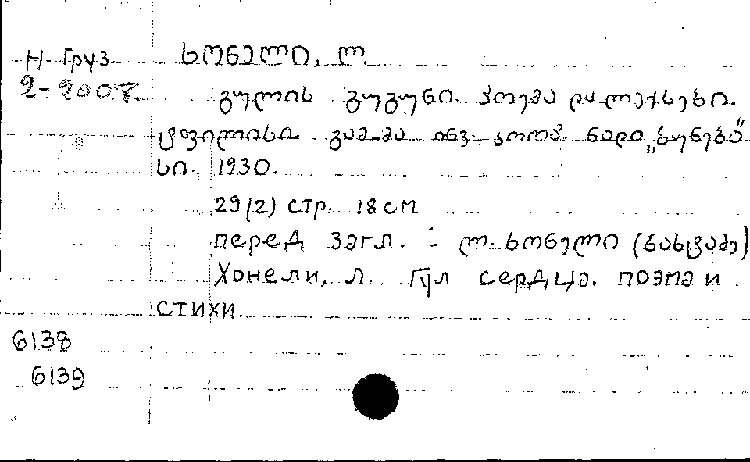 Н-Груз
2-2007
ხონელი, ლ
გულის გუგუნი. პოემა და ლექსები.
ტფილისი გამ-მა ინვ. კოოპ. ნადი „ბუნება"
სი. 1930.
29(2) стр 18 см
перед загл. : ლ. ხონელი (ნასყიდაშვ)
Хонели, Л. Гул сердца. поэма и
стихи
6138
6139